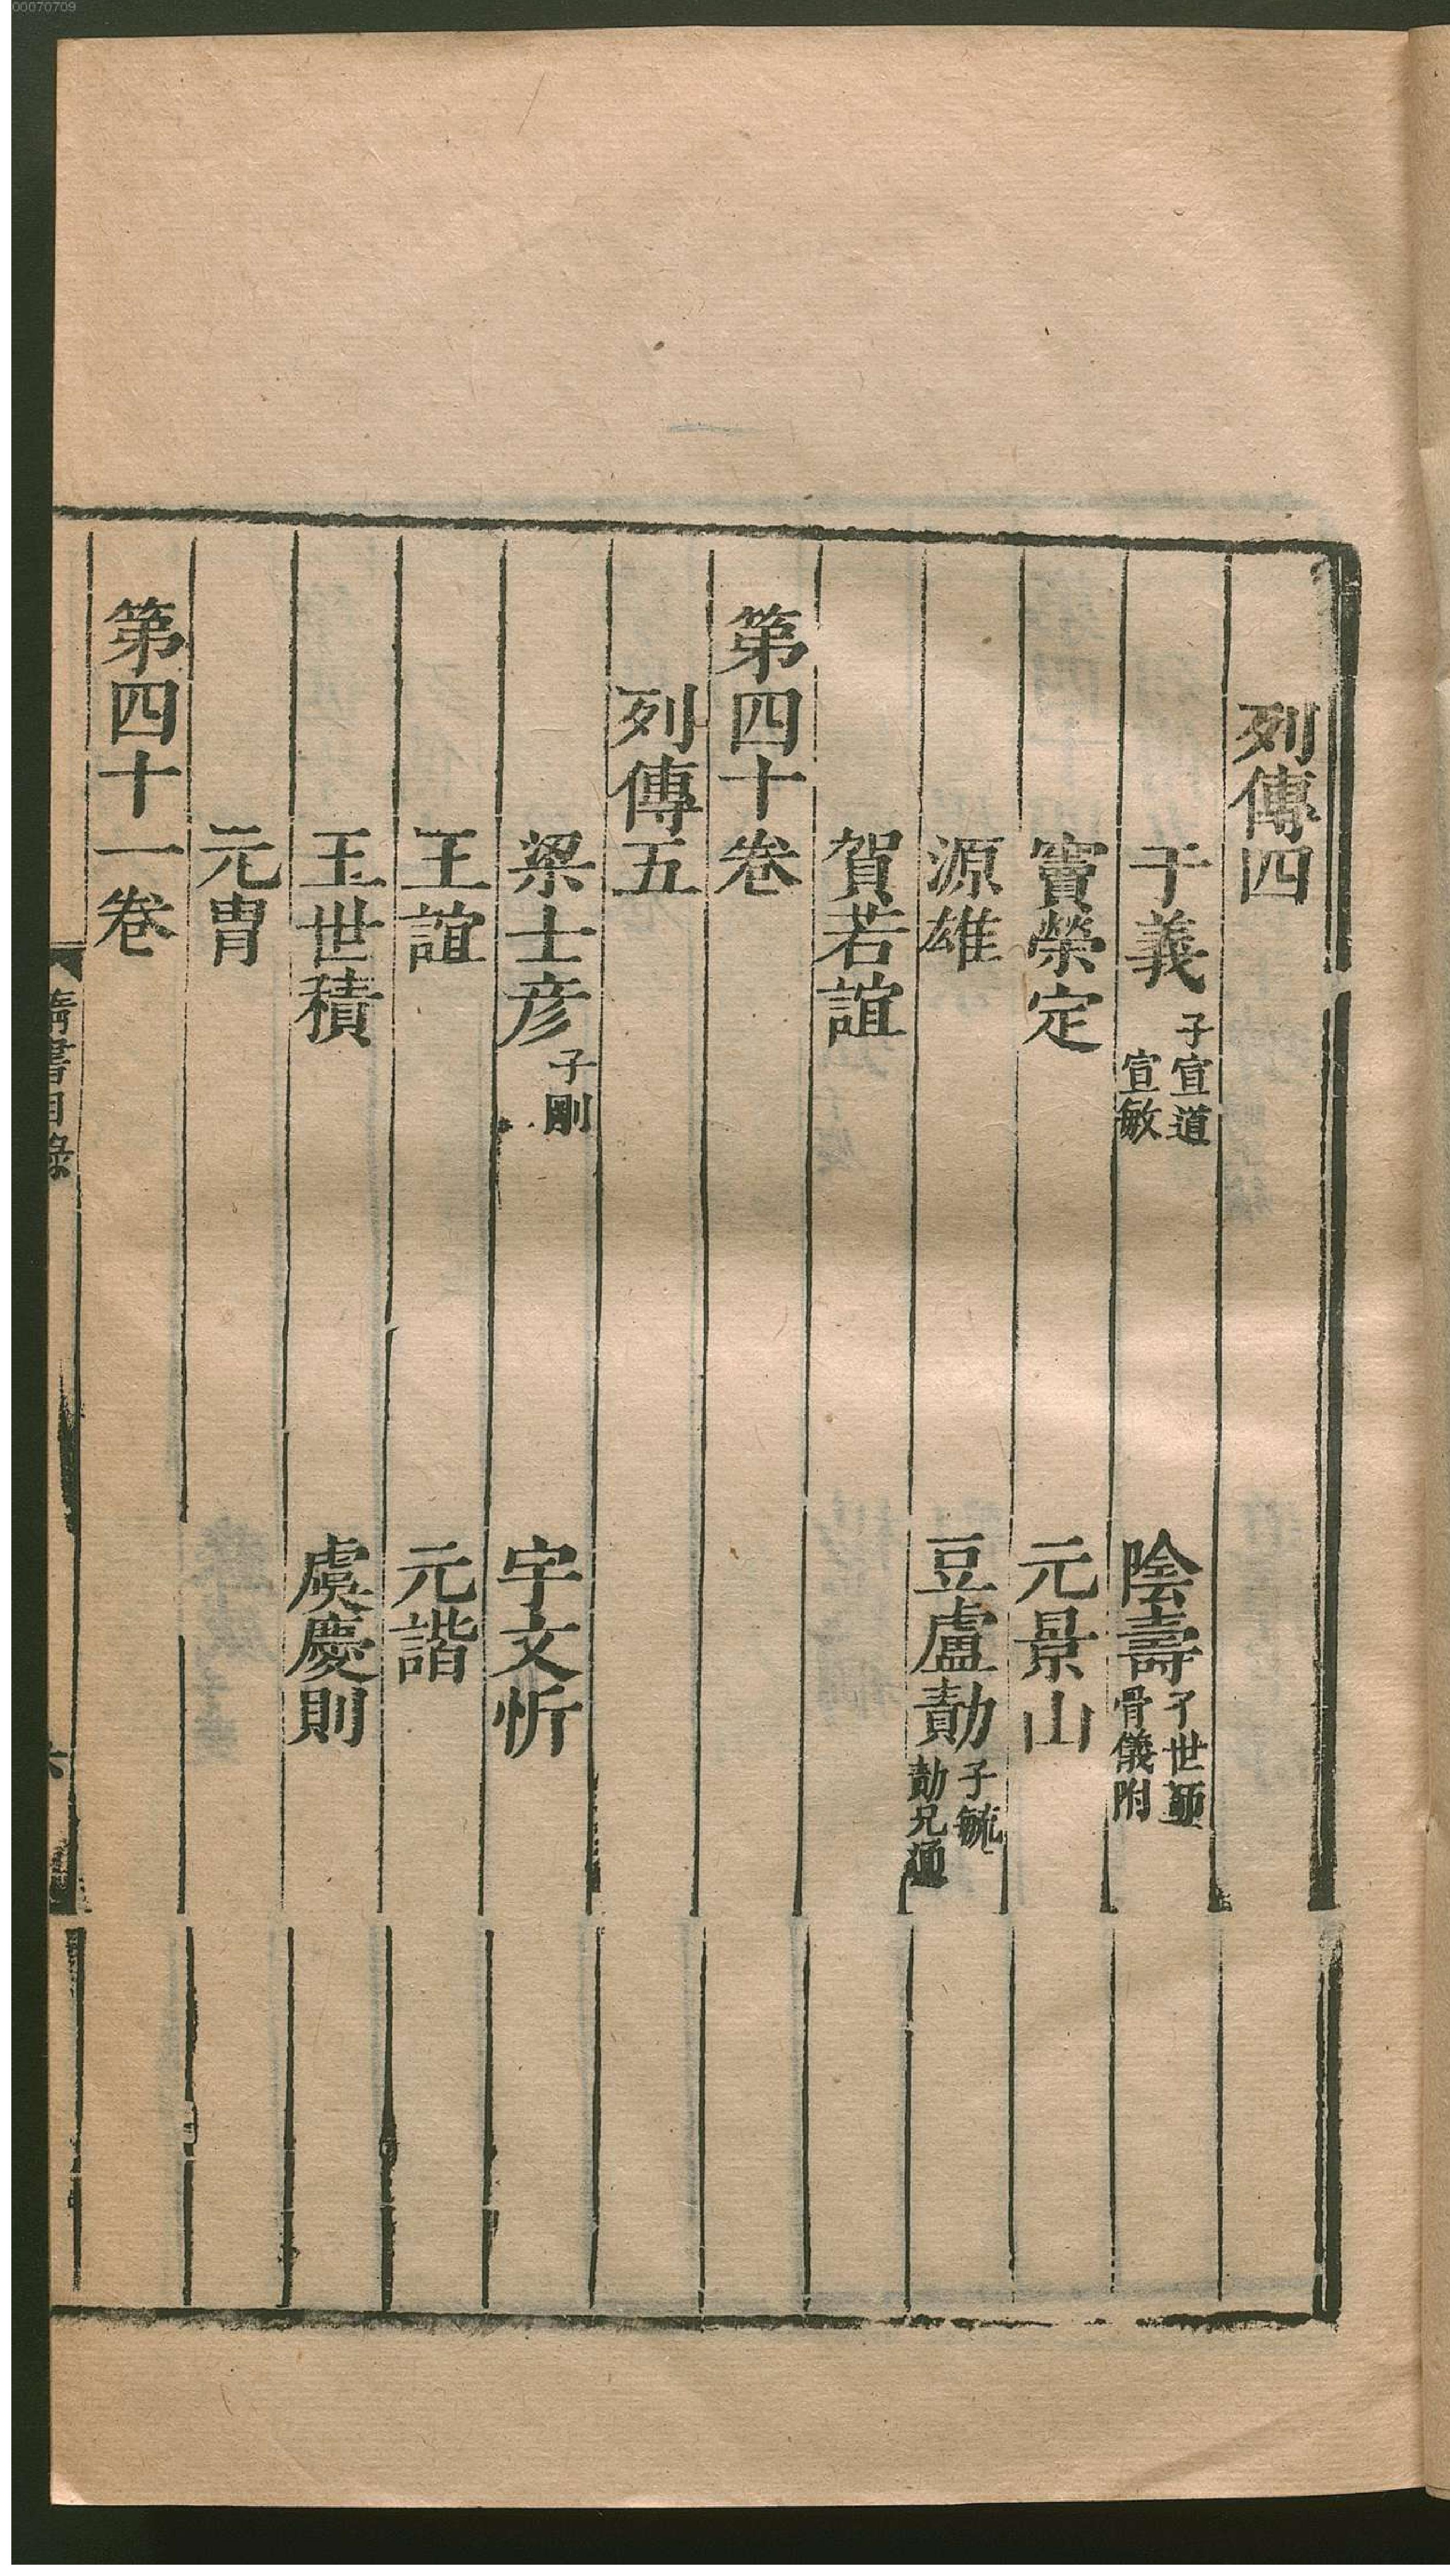 00070709
列傳四
于義 子宣道 宣敏 陰壽 子世師 骨儀附
竇榮定 元景山
源雄 豆盧勣 子毓 勣兄通
賀若誼
第四十卷
列傳五
梁士彦 子剛 宇文忻
王誼 元諧
王世積 虞慶則
元胄
第四十一卷
隋書目録
六